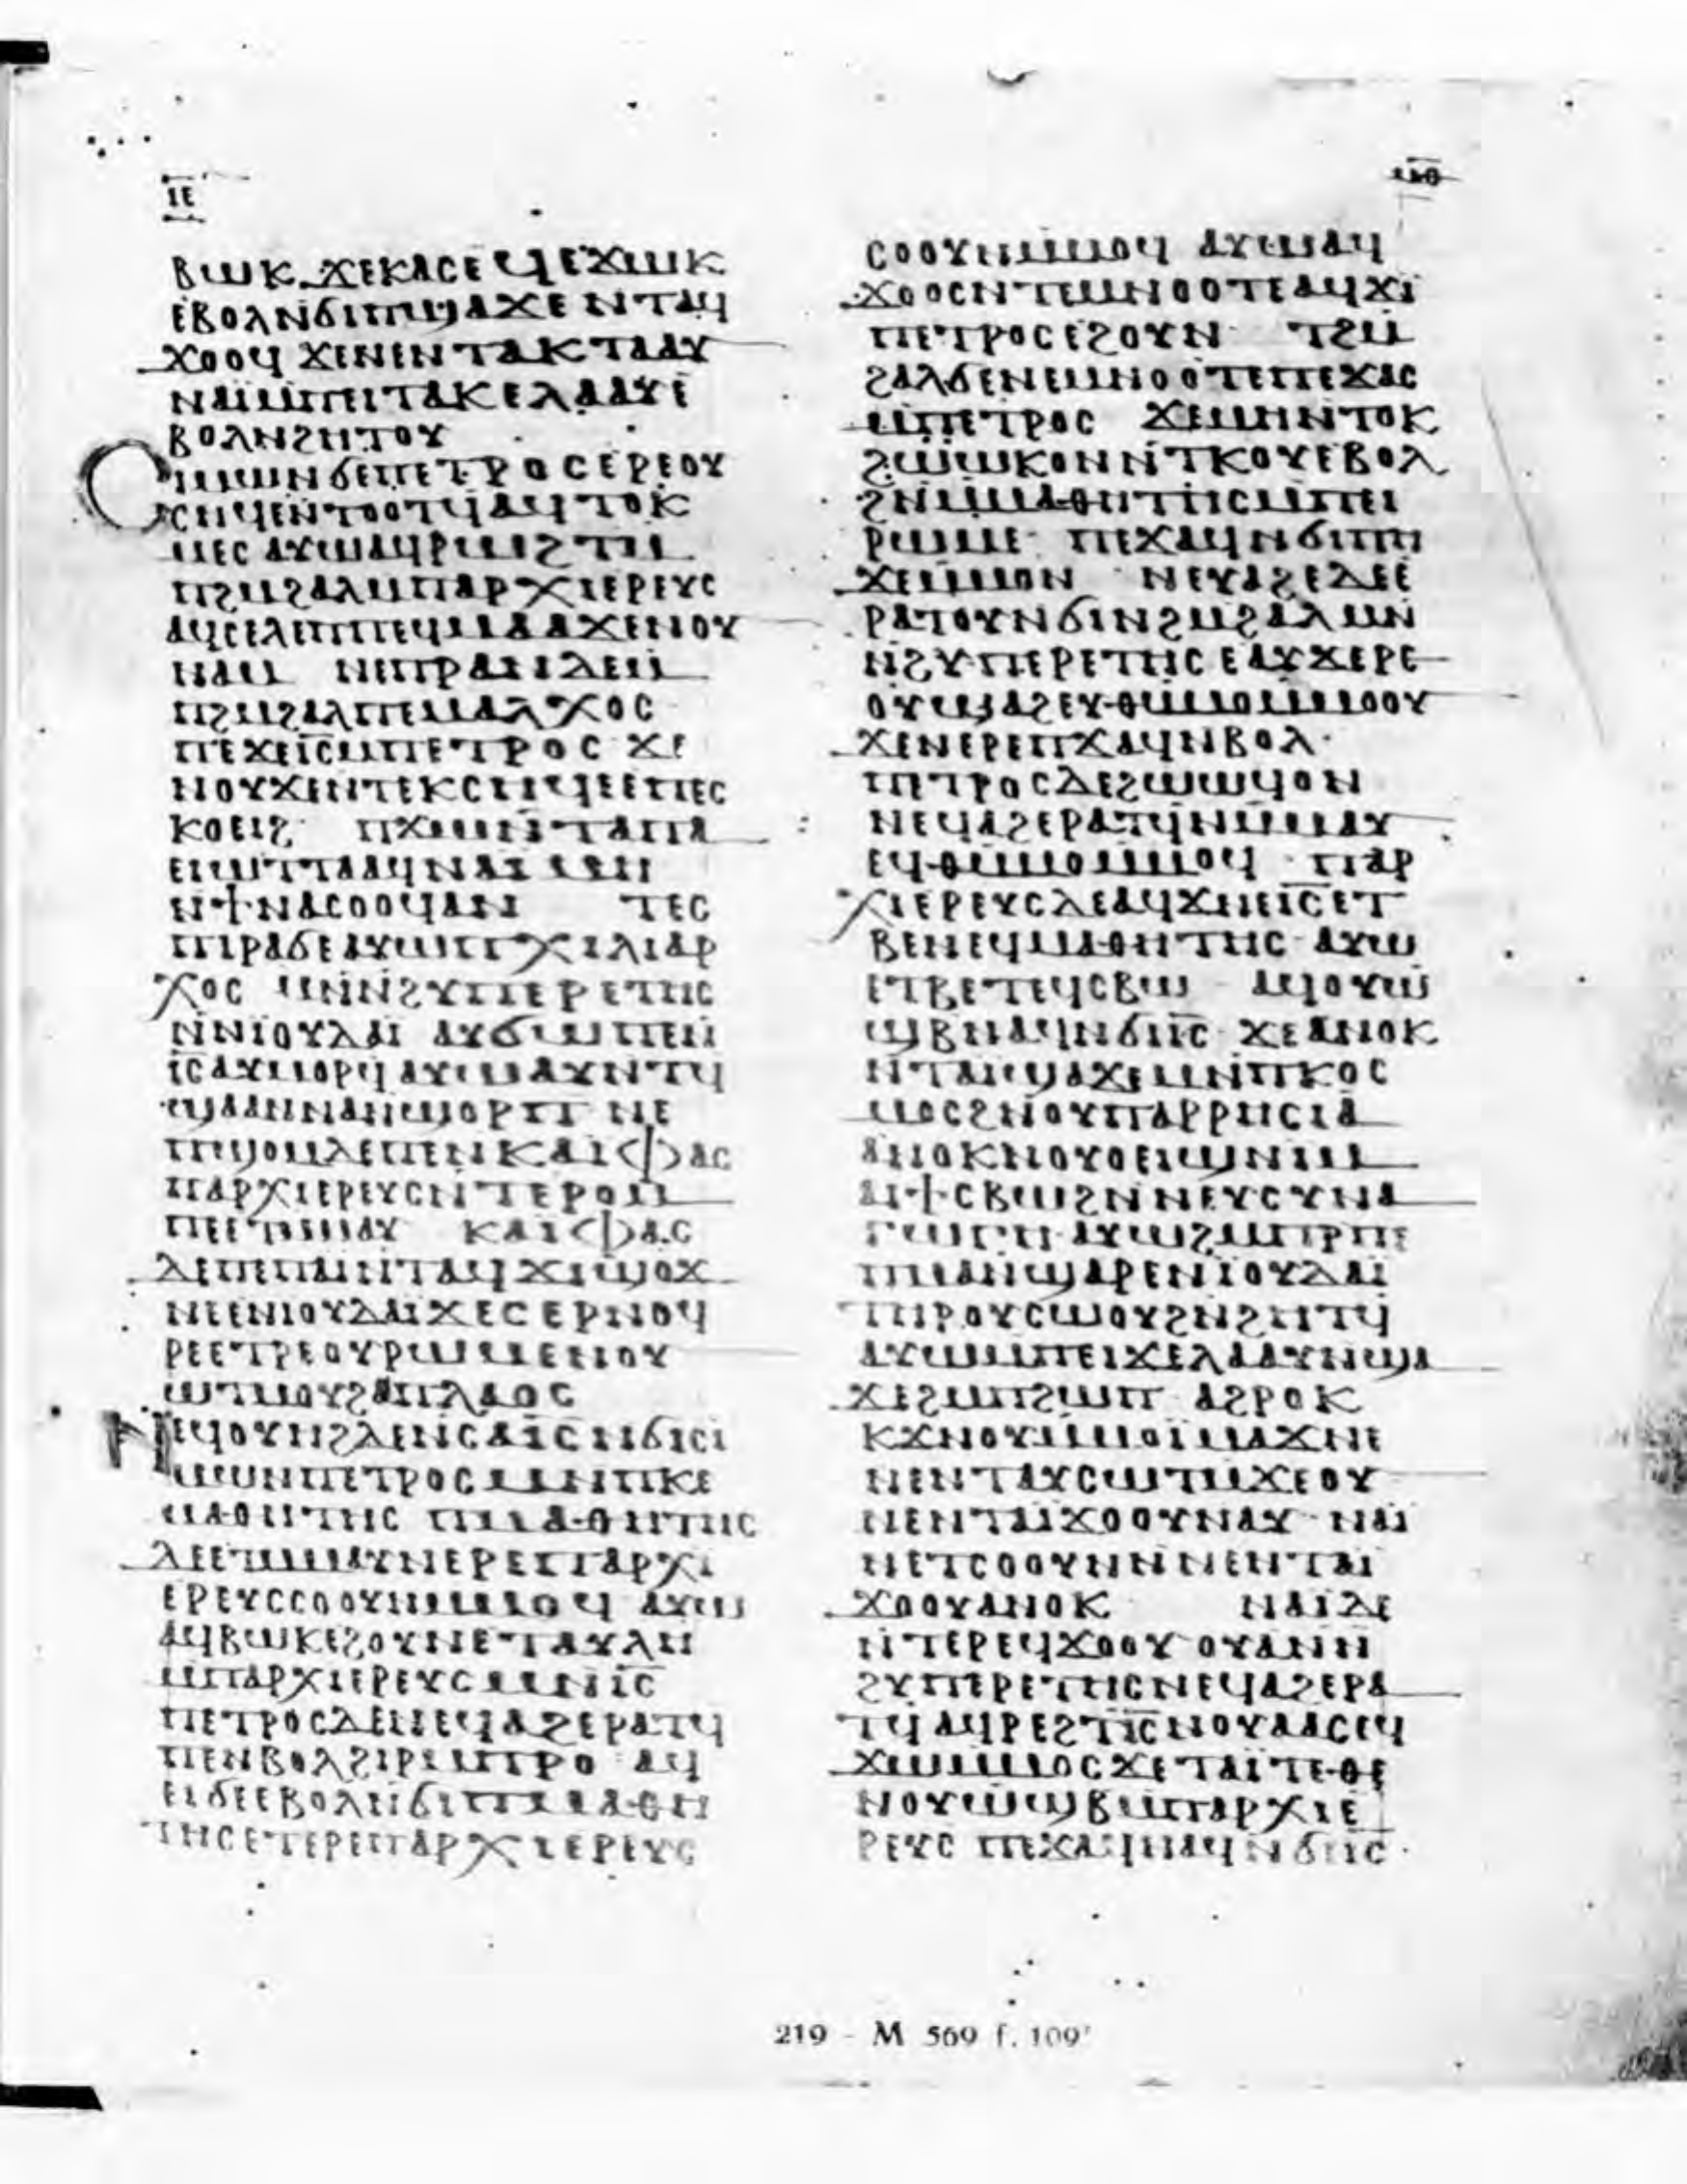 ⲓⲉ
ⲃⲱⲕ ϫⲉⲕⲁⲥⲉ ϥⲉϫⲱⲕ
ⲉⲃⲟⲗⲛϭⲓⲡϣⲁϫⲉ ⲛⲧⲁϥ
ϫⲟⲟϥ ϫⲉⲛⲉⲛⲧⲁⲕⲧⲁⲁⲩ
ⲛⲁⲓ̈ⲙ̄ⲡⲉⲓⲧⲁⲕⲉⲗⲁⲁⲩⲉ
ⲃⲟⲗⲛϩⲏⲧⲟⲩ
ⲥⲓⲙⲱⲛϭⲉⲡⲉⲧⲣⲟⲥⲉⲣⲉⲟⲩ
ⲥⲏϥⲉⲛⲧⲟⲟⲧϥⲁϥⲧⲟⲕ
ⲙⲉⲥ ⲁⲩⲱⲁϥⲣⲱϩⲧⲙ
ⲡϩⲙϩⲁⲗⲙⲡⲁⲣⲭⲓⲉⲣⲉⲩⲥ
ⲁϥⲥⲉⲗⲡⲡⲉϥⲙⲁⲁϫⲉⲛⲟⲩ
ⲛⲁⲙ ⲛⲉⲡⲣⲁⲛⲇⲉⲙ
ⲡϩⲙϩⲁⲗⲡⲉⲙⲁⲗⲭⲟⲥ
ⲡⲉϫⲉⲓ̅ⲥ̅ⲙⲡⲉⲧⲣⲟⲥ ϫⲉ
ⲛⲟⲩϫⲉⲛⲧⲉⲕⲥⲏϥⲉⲉⲡⲉⲥ
ⲕⲟⲉⲓϩ ⲡϫⲱⲛⲧⲁⲡⲁ
ⲉⲓⲱⲧⲧⲁⲁϥⲛⲁⲓ ⲙⲏ
ⲛϯⲛⲁⲥⲟⲟϥⲁⲛ ⲧⲉⲥ
ⲡⲓⲣⲁϭⲉⲁⲩⲱⲡⲭⲓⲗⲓⲁⲣ
ⲭⲟⲥ ⲙⲛⲛϩⲩⲡⲉⲣⲉⲧⲏⲥ
ⲛⲛⲓⲟⲩⲇⲁⲓ ⲁⲩϭⲱⲡⲉⲛ
ⲓ̅ⲥ̅ⲁⲩⲙⲟⲣϥ ⲁⲩⲱⲁⲩⲛⲧϥ
ϣⲁⲁⲛⲛⲁⲛϣⲟⲣⲡ ⲛⲉ
ⲡϣⲟⲙⲇⲉⲡⲉⲛⲕⲁⲓⲫⲁⲥ
ⲡⲁⲣⲭⲓⲉⲣⲉⲩⲥⲛⲧⲉⲣⲟⲙ
ⲡⲉⲉⲧⲙⲙⲁⲩ ⲕⲁⲓ̈ⲫⲁⲥ
ⲇⲉⲡⲉⲡⲁⲓⲛⲧⲁϥϫⲓϣⲟϫ
ⲛⲉⲉⲛⲓⲟⲩⲇⲁⲓ̈ϫⲉⲥⲉⲣⲛⲟϥ
ⲣⲉⲉⲧⲣⲉⲟⲩⲣⲱⲙⲉⲛⲟⲩ
ⲱⲧⲙⲟⲩϩⲁⲡⲗⲁⲟⲥ
ⲛⲉϥⲟⲩⲏϩⲇⲉⲛⲥⲁⲓ̅ⲥ̅ⲛϭⲓⲥⲓ
ⲙⲱⲛⲡⲉⲧⲣⲟⲥⲙⲛⲡⲕⲉ
ⲙⲁⲑⲏⲧⲏⲥ ⲡⲙⲁⲑⲏⲧⲏⲥ
ⲇⲉⲉⲧⲙⲙⲁⲩⲛⲉⲣⲉⲡⲁⲣⲭⲓ
ⲉⲣⲉⲩⲥⲥⲟⲟⲩⲛⲙⲙⲟϥ ⲁⲩⲱ
ⲁϥⲃⲱⲕⲉϩⲟⲩⲛⲉⲧⲁⲩⲗⲏ
ⲙⲡⲁⲣⲭⲓⲉⲣⲉⲩⲥⲙⲛⲓ̅ⲥ̅
ⲡⲉⲧⲣⲟⲥⲇⲉⲛⲉϥⲁϩⲉⲣⲁⲧϥ
ⲡⲉⲛⲃⲟⲗϩⲓⲣⲙⲡⲣⲟ ⲁϥ
ⲉⲓϭⲉⲉⲃⲟⲗⲛϭⲓⲡⲙⲁⲑⲏ
ⲧⲏⲥⲉⲧⲉⲣⲉⲡⲁⲣⲭⲓⲉⲣⲉⲩⲥ
ⲥⲟⲟⲩⲛⲙⲙⲟϥ ⲁⲩⲱⲁϥ
ϫⲟⲟⲥⲛⲧⲉⲙⲛⲟⲟⲧⲉⲁϥϫⲓ
ⲡⲉⲧⲣⲟⲥⲉϩⲟⲩⲛ ⲧϩⲙ
ϩⲁⲗϭⲉⲛⲉⲙⲛⲟⲟⲧⲉⲡⲉϫⲁⲥ
ⲙⲡⲉⲧⲣⲟⲥ ϫⲉⲙⲏⲛⲧⲟⲕ
ϩⲱⲱⲕⲟⲛⲛⲧⲕⲟⲩⲉⲃⲟⲗ
ϩⲛⲙⲙⲁⲑⲏⲧⲏⲥⲙⲡⲉⲓ
ⲣⲱⲙⲉ ⲡⲉϫⲁϥⲛϭⲓⲡⲏ
ϫⲉⲙⲙⲟⲛ ⲛⲉⲩⲁϩⲉⲇⲉⲉ
ⲣⲁⲧⲟⲩⲛϭⲓⲛϩⲙϩⲁⲗⲙⲛ
ⲛϩⲩⲡⲉⲣⲉⲧⲏⲥⲉⲁⲩϫⲉⲣⲉ
ⲟⲩϣⲁϩⲉⲩⲑⲙⲙⲟⲙⲙⲟⲟⲩ
ϫⲉⲛⲉⲣⲉⲡϫⲁϥⲛⲃⲟⲗ
ⲡⲉⲧⲣⲟⲥⲇⲉϩⲱⲱϥⲟⲛ
ⲛⲉϥⲁϩⲉⲣⲁⲧϥⲛⲙⲙⲁⲩ
ⲉϥⲑⲙⲙⲟⲙⲙⲟϥ ⲡⲁⲣ
ⲭⲓⲉⲣⲉⲩⲥⲇⲉⲁϥϫⲛⲉⲓ̅ⲥ̅ⲉⲧ
ⲃⲉⲛⲉϥⲙⲁⲑⲏⲧⲏⲥ ⲁⲩⲱ
ⲉⲧⲃⲉⲧⲉϥⲥⲃⲱ ⲁϥⲟⲩⲱ
ϣⲃⲛⲁϥⲛϭⲓⲓ̅ⲥ̅ ϫⲉⲁⲛⲟⲕ
ⲛⲧⲁⲓϣⲁϫⲉⲙⲛⲡⲕⲟⲥ
ⲙⲟⲥϩⲛⲟⲩⲡⲁⲣⲣⲏⲥⲓⲁ
ⲁⲛⲟⲕⲛⲟⲩⲟⲉⲓϣⲛⲓⲙ
ⲁⲓϯⲥⲃⲱϩⲛⲛⲉⲩⲥⲩⲛⲁ
ⲅⲱⲅⲏ ⲁⲩⲱϩⲙⲡⲣⲡⲉ
ⲡⲙⲁⲛϣⲁⲣⲉⲛⲓⲟⲩⲇⲁⲓ̈
ⲧⲏⲣⲟⲩⲥⲱⲟⲩϩⲛϩⲏⲧϥ
ⲁⲩⲱⲙⲡⲉⲓϫⲉⲗⲁⲁⲩⲛϣⲁ
ϫⲉϩⲙⲡϩⲱⲡ ⲁϩⲣⲟⲕ
ⲕϫⲛⲟⲩⲙⲙⲟⲓ̈ⲙⲁϫⲛⲉ
ⲛⲉⲛⲧⲁⲩⲥⲱⲧⲙϫⲉⲟⲩ
ⲛⲉⲛⲧⲁⲓ̈ϫⲟⲟⲩⲛⲁⲩ ⲛⲁⲓ̈
ⲛⲉⲧⲥⲟⲟⲩⲛⲛⲛⲉⲛⲧⲁⲓ
ϫⲟⲟⲩⲁⲛⲟⲕ ⲛⲁⲓ̈ⲇⲉ
ⲛⲧⲉⲣⲉϥϫⲟⲟⲩ ⲟⲩⲁⲛⲛ
ϩⲩⲡⲉⲣⲉⲧⲏⲥⲛⲉϥⲁϩⲉⲣⲁ
ⲧϥ ⲁϥⲣⲉϩⲧⲓ̅ⲥ̅ⲛⲟⲩⲁⲁⲥⲉϥ
ϫⲱⲙⲙⲟⲥϫⲉⲧⲁⲓ̈ⲧⲉⲑⲉ
ⲛⲟⲩⲱϣⲃⲙⲡⲁⲣⲭⲓⲉ
ⲣⲉⲩⲥ ⲡⲉϫⲁϥⲛⲁϥⲛϭⲓⲓ̅ⲥ̅
219 - M 569 f. 109ʳ